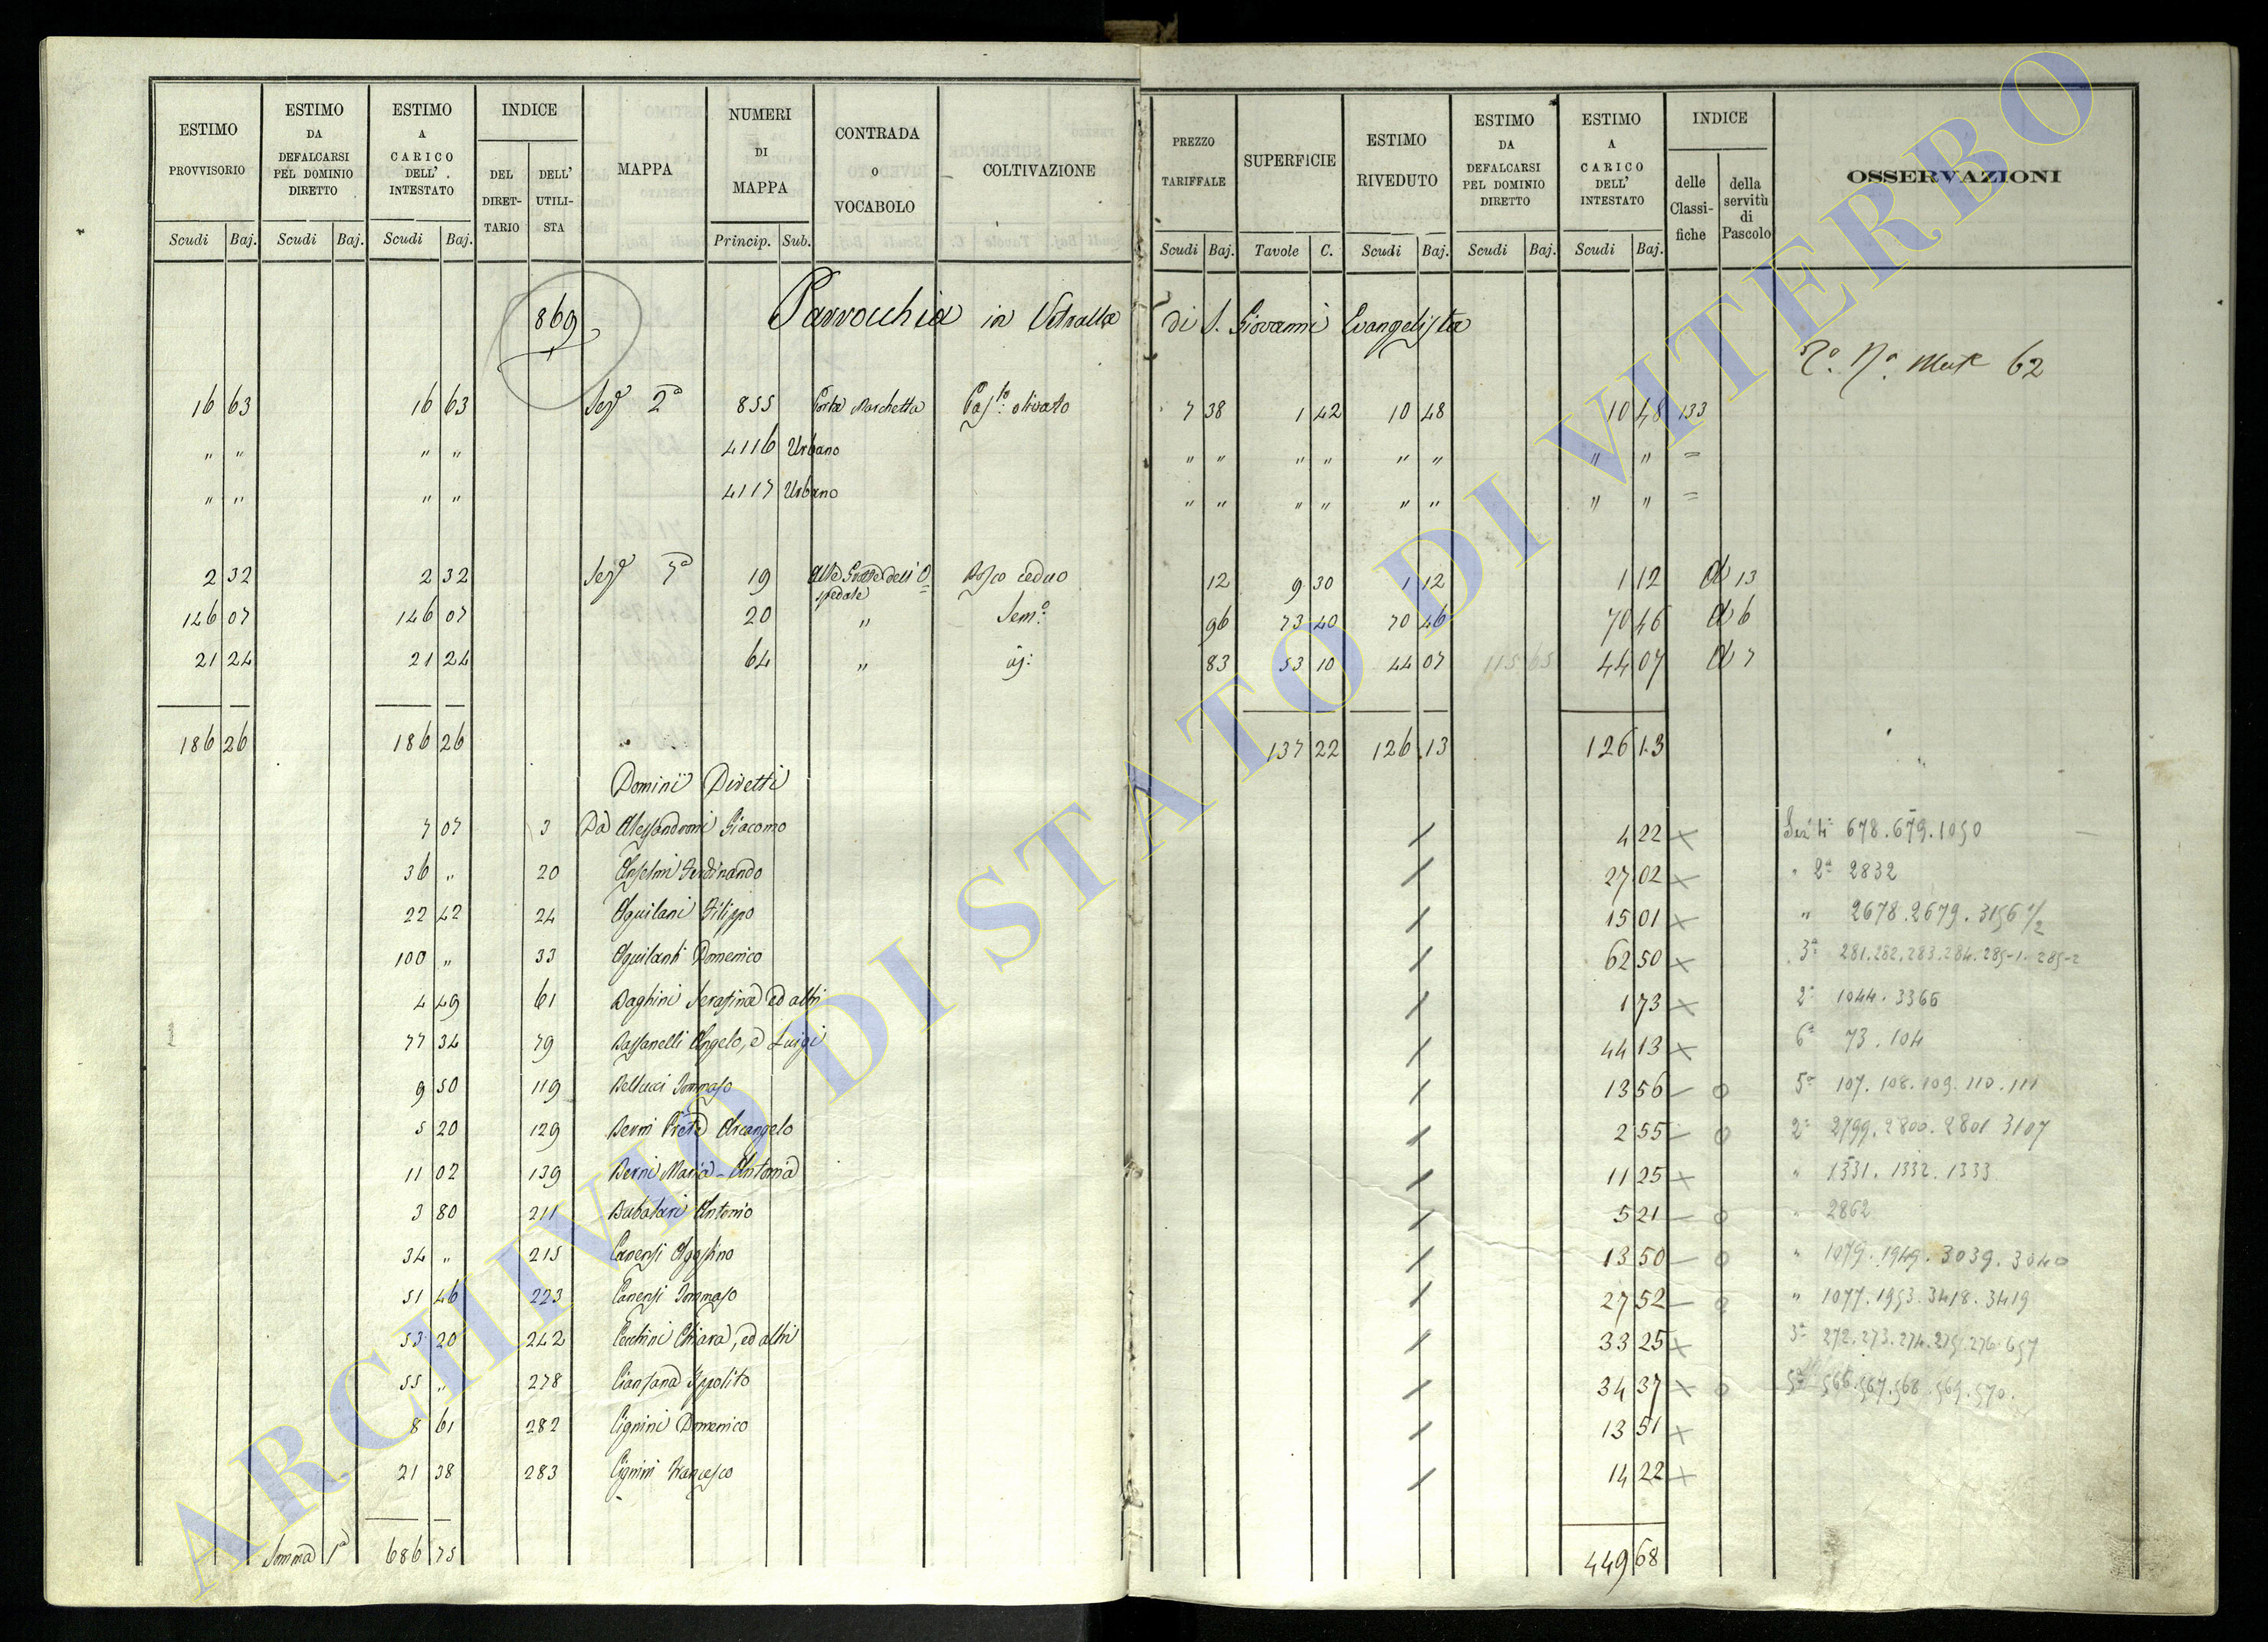 ESTIMO PROVVISORIO | ESTIMO DA DEFALCARSI PEL DOMINIO DIRETTO | ESTIMO A CARICO DELL' INTESTATO | INDICE DEL DIRETTARIO | DELL' UTILISTA | MAPPA | NUMERI DI MAPPA | CONTRADA o VOCABOLO | COLTIVAZIONE | PREZZO TARIFFALE | SUPERFICIE | ESTIMO RIVEDUTO | ESTIMO DA DEFALCARSI PEL DOMINIO DIRETTO | ESTIMO A CARICO DELL' INTESTATO | INDICE delle Classifiche | della servitù di Pascolo | OSSERVAZIONI
Scudi Baj. Scudi Baj. Scudi Baj. Princip. Sub. Scudi Baj. Tavole C. Scudi Baj. Scudi Baj. Scudi Baj.
869 Parrocchia in Vetralla di S. Giovanni Evangelista
62
16 63 16 63 Sezᵉ 2ª 855 Porta Marchetta Pasᵗᵒ: olivato 7 38 1 42 10 48 10 48 133
" " " " 4116 Urbano " " " " " " " " =
" " " " 4117 Urbano " " " " " " " " =
2 32 2 32 Sezᵉ 7ª 19 Alle Grotte dell'O=spedale Bosco ceduo 12 9 30 1 12 1 12 13
146 07 146 07 20 " Semᵒ: 96 73 40 70 46 70 46 6
21 24 21 24 64 " 83 53 10 44 07 115 65 44 07 7
186 26 186 26 137 22 126 13 126 13
Dominii Diretti
7 07 3 Da Alessandroni Giacomo / 4 22 × Sezᵉ 4ª 678. 679. 1050
36 " 20 Anselmi Ferdinando / 27 02 × " 2ª 2832
22 42 24 Aquilani Filippo / 15 01 × " 2678. 2679. 3156 1/2
100 " 33 Aquilanti Domenico / 62 50 × 3ª 281. 282. 283. 284. 285-1. 285-2
4 49 61 Baghini Serafina ed altri / 1 73 × 2ª 1044. 3366
77 34 79 Bassanelli Angelo, e Luigi / 44 13 × 6ª 73. 104
9 50 119 Bellucci Tommaso / 13 56 – o 5ª 107. 108. 109. 110. 111
5 20 129 Berni Prete Arcangelo / 2 55 – o 2ª 2799. 2800. 2801 3107
11 02 139 Berni Maria-Antonia / 11 25 × " 1331. 1332. 1333
3 80 211 Bubalari Antonio / 5 21 – o " 2862
34 " 215 Canensi Agostino / 13 50 – o " 1079. 1949. 3039. 3040
51 46 223 Canensi Tommaso / 27 52 – o " 1077. 1953. 3418. 3419
53 20 242 Cecchini Chiara, ed altri / 33 25 × 3ª 272. 273. 274. 275. 276. 657
55 " 278 Cianfana Ippolito / 34 37 × o 5ª 566. 567. 568. 569. 570.
8 61 282 Cignini Domenico / 13 51 ×
21 38 283 Cignini Francesco / 14 22 ×
Somma 1ª 686 75 449 68
ARCHIVIO DI STATO DI VITERBO